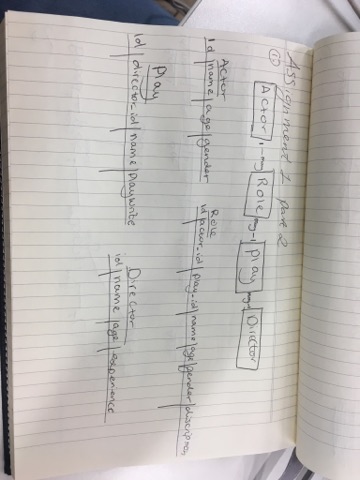 Assignment 1 part 2
①
Actor 1-many Role many-1 Play many-1 Director
Actor
id | name | age | gender
Role
id | actor_id | play_id | name | age | gender | discription
Play
id | director_id | name | playwrite
Director
id | name | age | experience